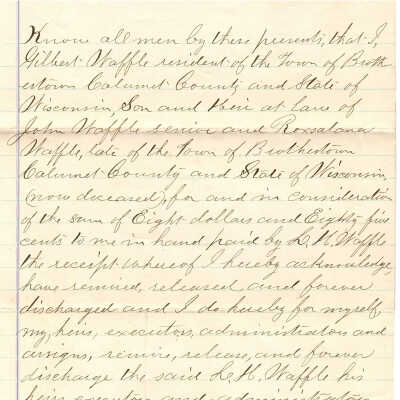 Know all men by these presents, that I,
Gilbert Waffle resident of the Town of Broth
ertown Calumet County and State of
Wisconsin, Son and Heir at law of
John Waffle senior and Roxsalana
Waffle, late of the Town of Brothertown
Calumet County and State of Wisconsin
(now deceased), for and in consideration
of the sum of Eight dollars and Eighty five
cents to me in hand paid by L. H. Waffle
the receipt whereof I hereby acknowledge,
have remised, released, and forever
discharged and I do hereby for myself,
my, heirs, executors, administrators and
assigns, remise, release, and forever
discharge the said L. H. Waffle his
heirs executors and administrators